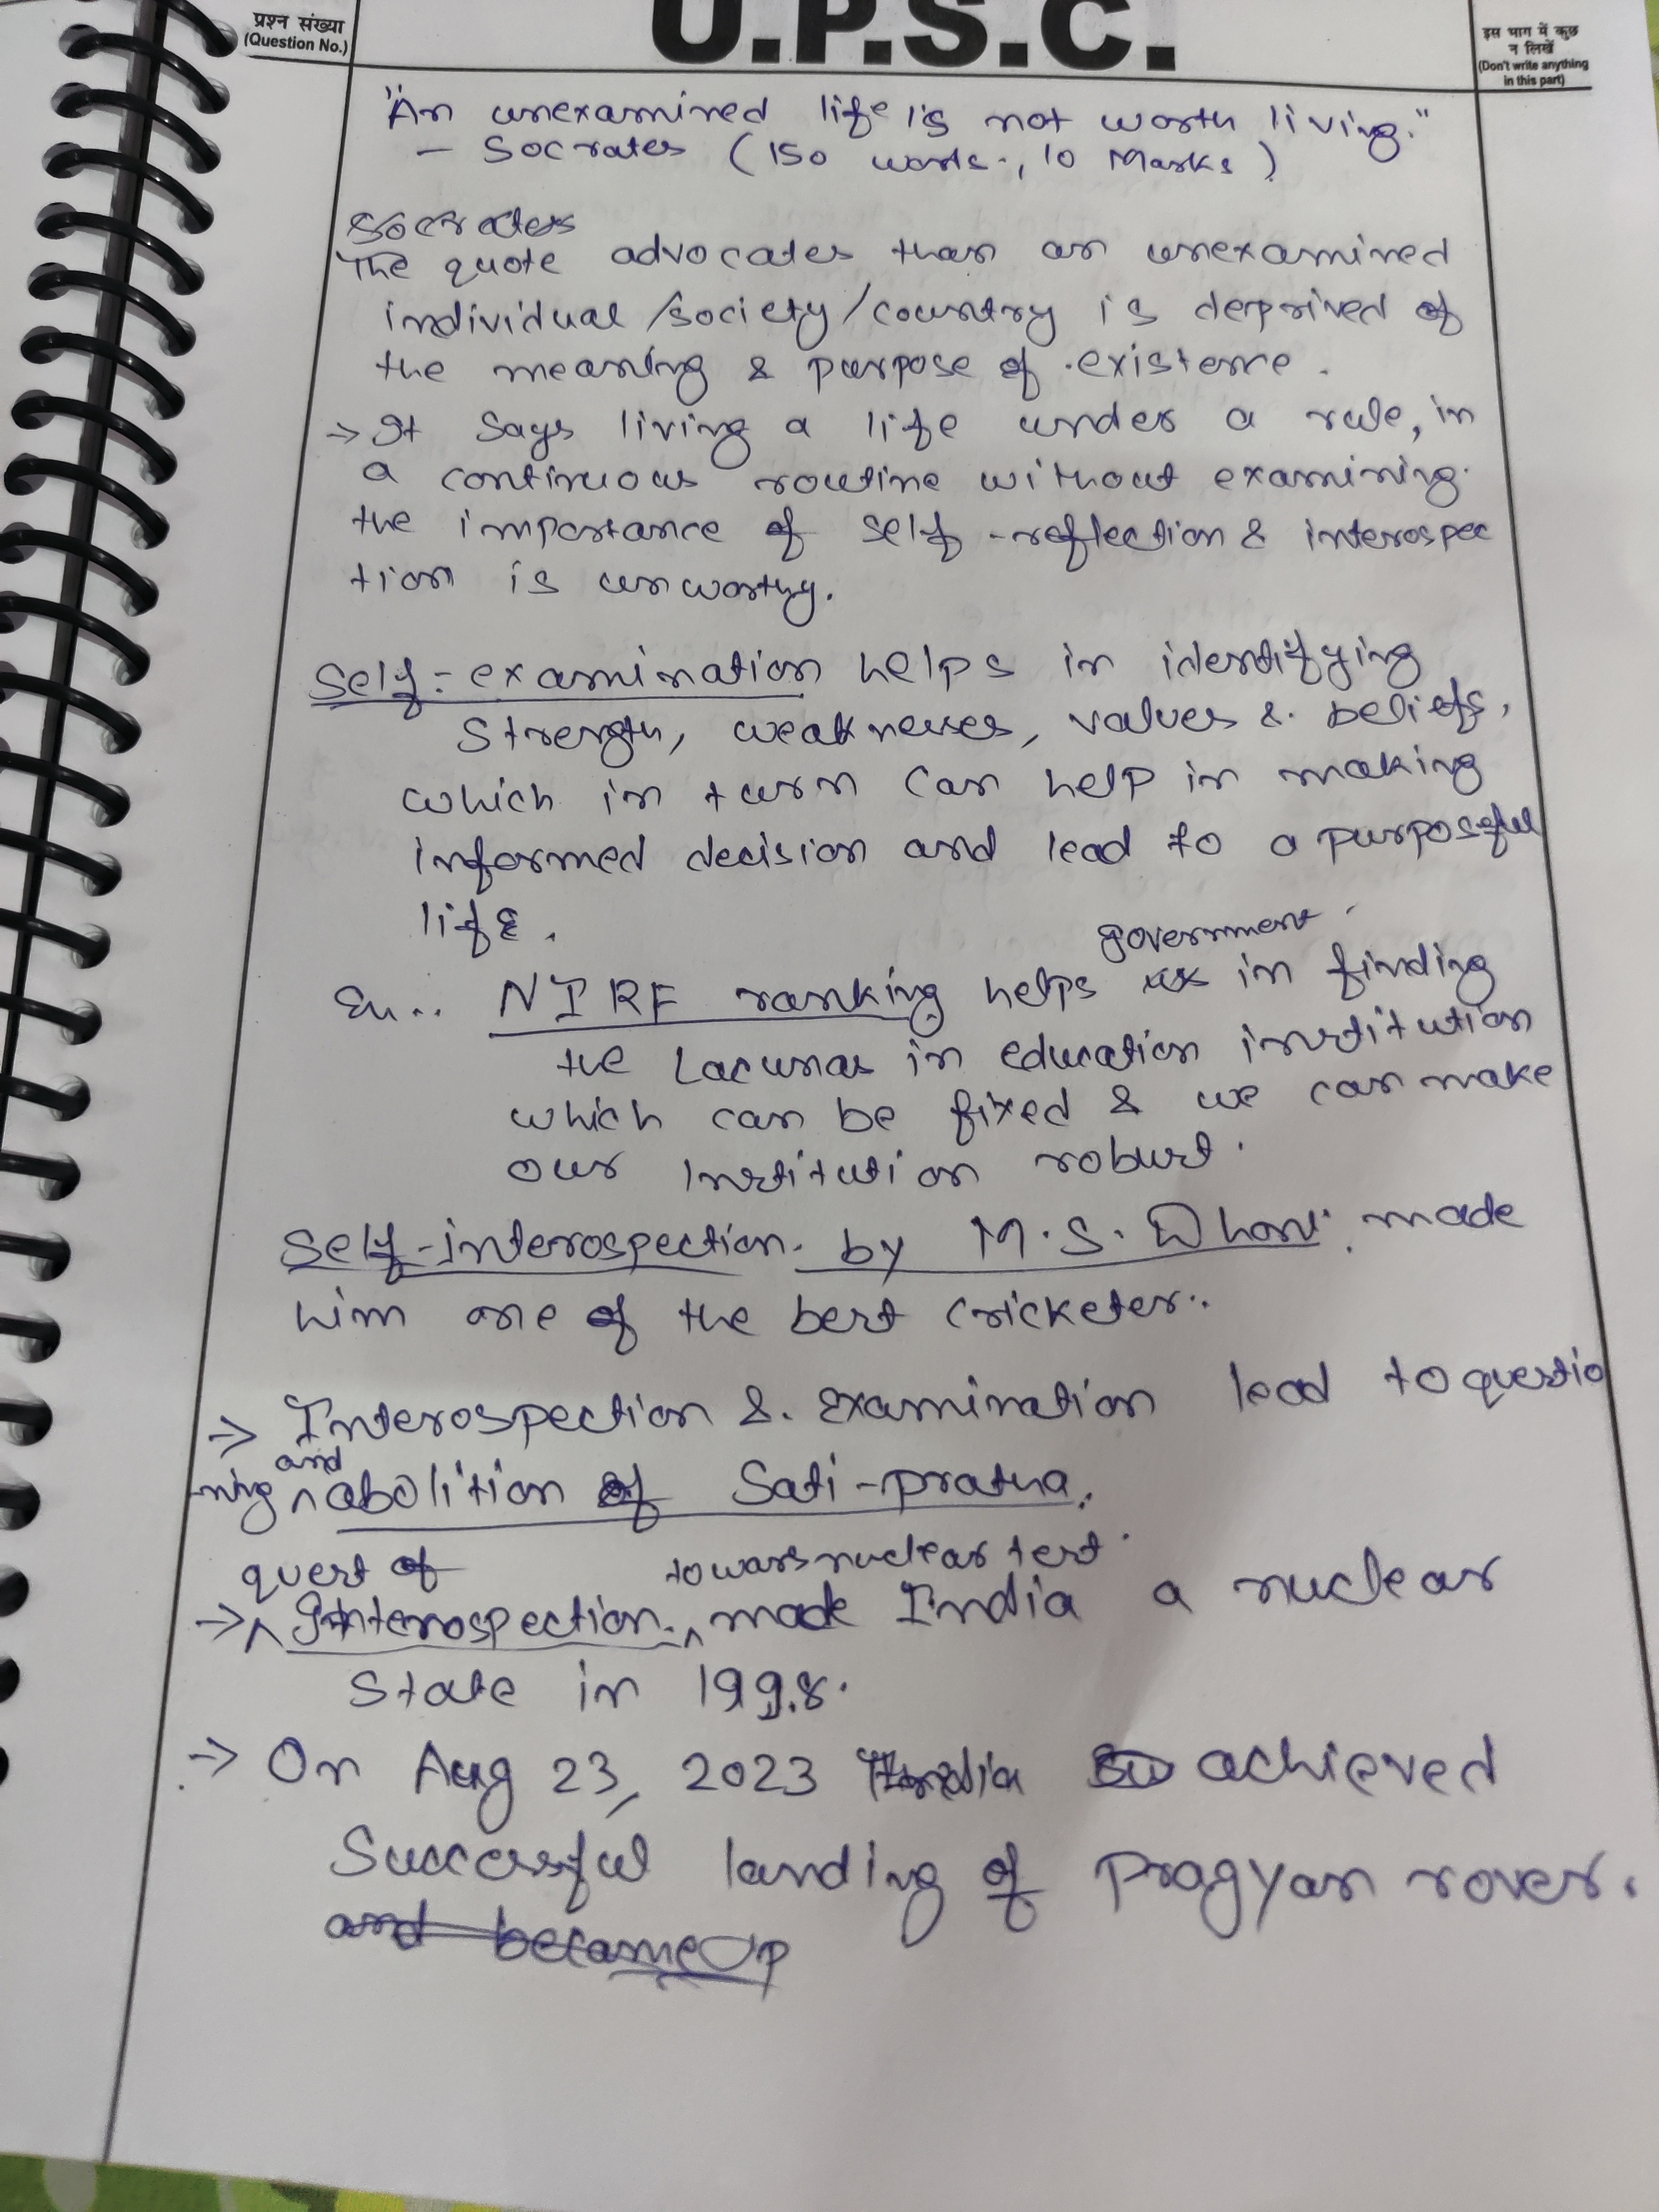 प्रश्न संख्या
(Question No.)
U.P.S.C.
इस भाग में कुछ
न लिखें
(Don't write anything
in this part)
"An unexamined life is not worth living."
- Socrates (150 words., 10 Marks)
Socrates
The quote advocates than an unexamined
individual/society/country is deprived of
the meaning & purpose of existence.
→ It says living a life under a rule, in
a continuous routine without examining
the importance of self-reflection & interospec
tion is unworthy.
Self-examination helps in identifying
Strength, weaknesses, values & beliefs,
which in turn can help in making
informed decision and lead to a purposeful
life.
government
Ex.. NIRF ranking helps in finding
the Lacunas in education institution
which can be fixed & we can make
our institution robust.
Self-interospection by M.S. Dhoni made
him one of the best cricketer..
→ Interospection & examination lead to questio
and
-ning ^ abolition of Sati-pratha.
quest of towars nuclear test
→ ^ Interospection ^ made India a nuclear
State in 1998.
→ On Aug 23, 2023 India achieved
Successful landing of Pragyan rover.
and became